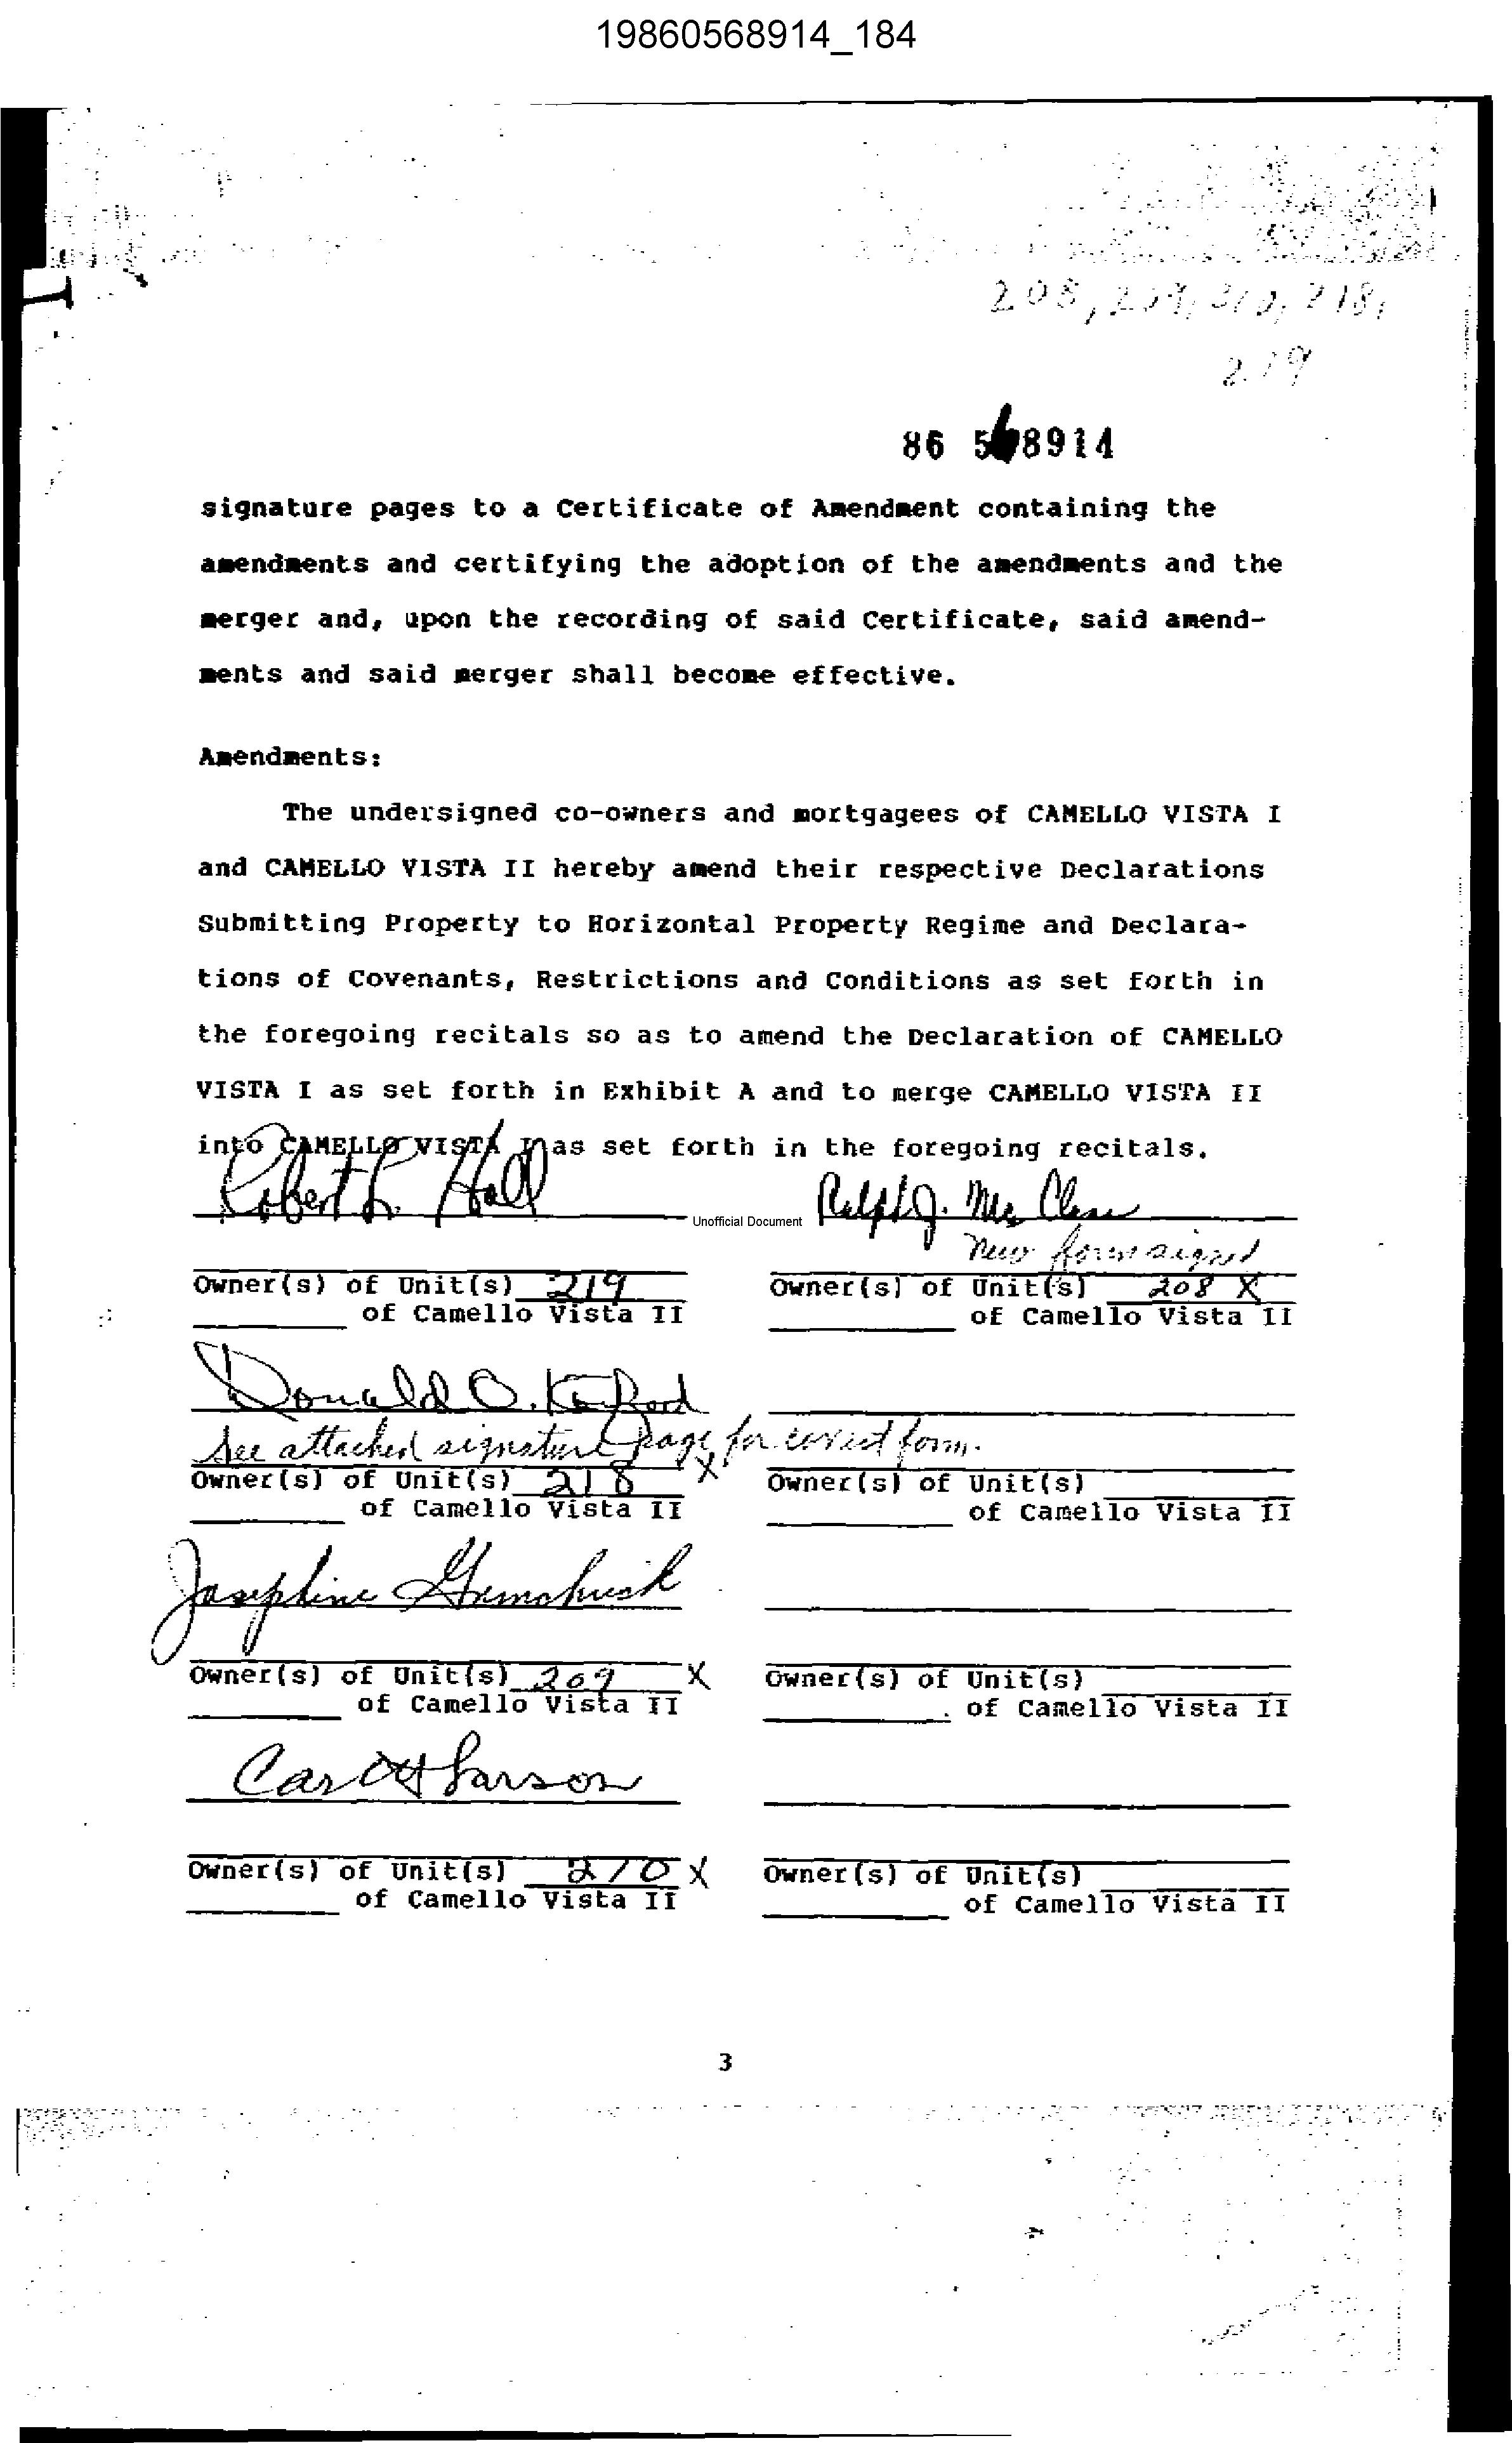 19860568914_184
208, 209, 210, 218,
219
86 568914
signature pages to a Certificate of Amendment containing the
amendments and certifying the adoption of the amendments and the
merger and, upon the recording of said Certificate, said amend-
ments and said merger shall become effective.
Amendments:
The undersigned co-owners and mortgagees of CAMELLO VISTA I
and CAMELLO VISTA II hereby amend their respective Declarations
Submitting Property to Horizontal Property Regime and Declara-
tions of Covenants, Restrictions and Conditions as set forth in
the foregoing recitals so as to amend the Declaration of CAMELLO
VISTA I as set forth in Exhibit A and to merge CAMELLO VISTA II
into CAMELLO VISTA I as set forth in the foregoing recitals.
Robert L. Hall Ralph J. Mc
Unofficial Document
New form signed
Owner(s) of Unit(s) 219 Owner(s) of Unit(s) 208 X
of Camello Vista II of Camello Vista II
Donald O.
See attached signature page for correct form.
Owner(s) of Unit(s) 218 X Owner(s) of Unit(s)
of Camello Vista II of Camello Vista II
Josephine
Owner(s) of Unit(s) 209 X Owner(s) of Unit(s)
of Camello Vista II of Camello Vista II
Larson
Owner(s) of Unit(s) 210 X Owner(s) of Unit(s)
of Camello Vista II of Camello Vista II
3